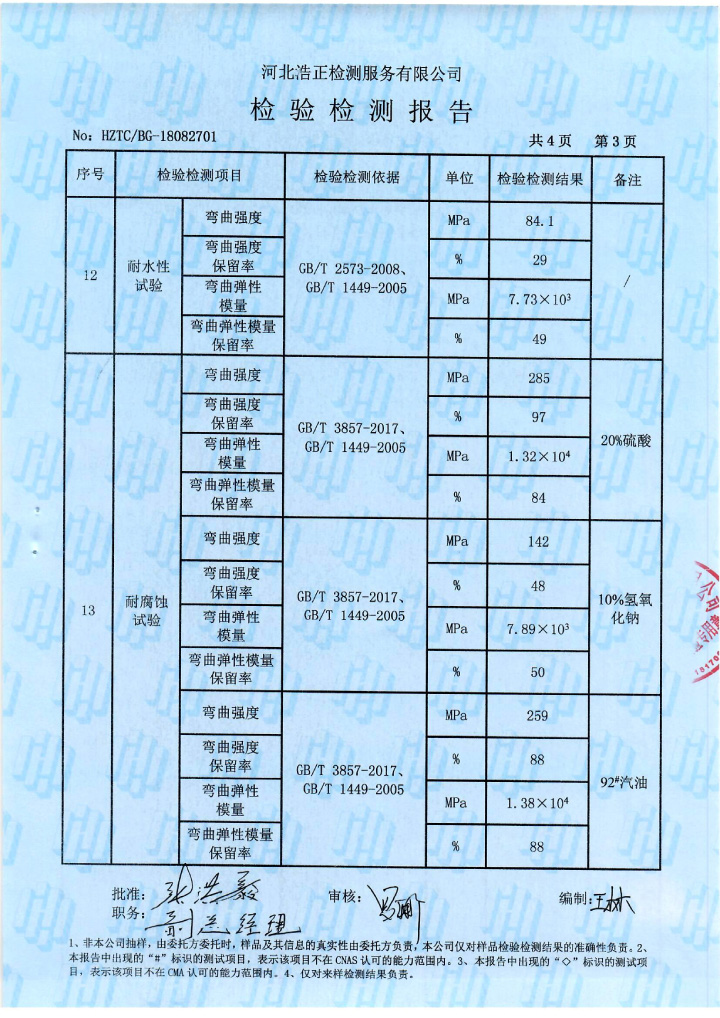 河北浩正检测服务有限公司
检验检测报告
No: HZTC/BG-18082701 共4页 第3页
序号 检验检测项目 检验检测依据 单位 检验检测结果 备注
12 耐水性试验 GB/T 2573-2008、GB/T 1449-2005 /
弯曲强度 MPa 84.1
弯曲强度保留率 % 29
弯曲弹性模量 MPa 7.73×10³
弯曲弹性模量保留率 % 49
13 耐腐蚀试验
GB/T 3857-2017、GB/T 1449-2005 20%硫酸
弯曲强度 MPa 285
弯曲强度保留率 % 97
弯曲弹性模量 MPa 1.32×10⁴
弯曲弹性模量保留率 % 84
GB/T 3857-2017、GB/T 1449-2005 10%氢氧化钠
弯曲强度 MPa 142
弯曲强度保留率 % 48
弯曲弹性模量 MPa 7.89×10³
弯曲弹性模量保留率 % 50
GB/T 3857-2017、GB/T 1449-2005 92#汽油
弯曲强度 MPa 259
弯曲强度保留率 % 88
弯曲弹性模量 MPa 1.38×10⁴
弯曲弹性模量保留率 % 88
批准: 张浩毅 审核: 编制: 王林
职务: 副总经理
1、非本公司抽样，由委托方委托时，样品及其信息的真实性由委托方负责，本公司仅对样品检验检测结果的准确性负责。2、
本报告中出现的“#”标识的测试项目，表示该项目不在CNAS认可的能力范围内。3、本报告中出现的“◇”标识的测试项
目，表示该项目不在CMA认可的能力范围内。4、仅对来样检测结果负责。